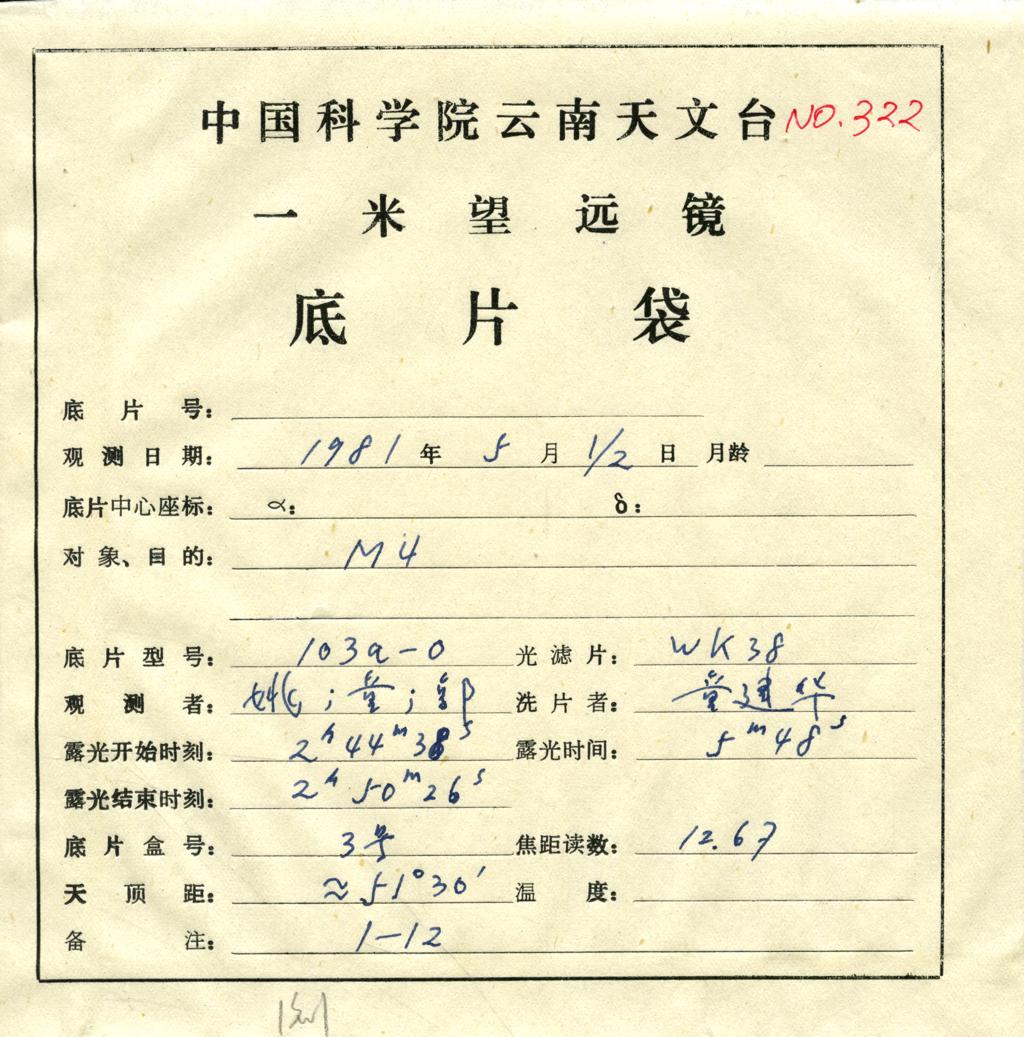 中国科学院云南天文台 NO.322
一米望远镜
底片袋
底片号：
观测日期： 1981 年 5 月 1/2 日 月龄
底片中心座标： α： δ：
对象、目的： M4
底片型号： 103a-O 光滤片： WK38
观测者： 姚；童；郭 洗片者： 童建华
露光开始时刻： 2h44m38s 露光时间： 5m48s
露光结束时刻： 2h50m26s
底片盒号： 3号 焦距读数： 12.67
天顶距： ≈51°30′ 温度：
备注： 1-12